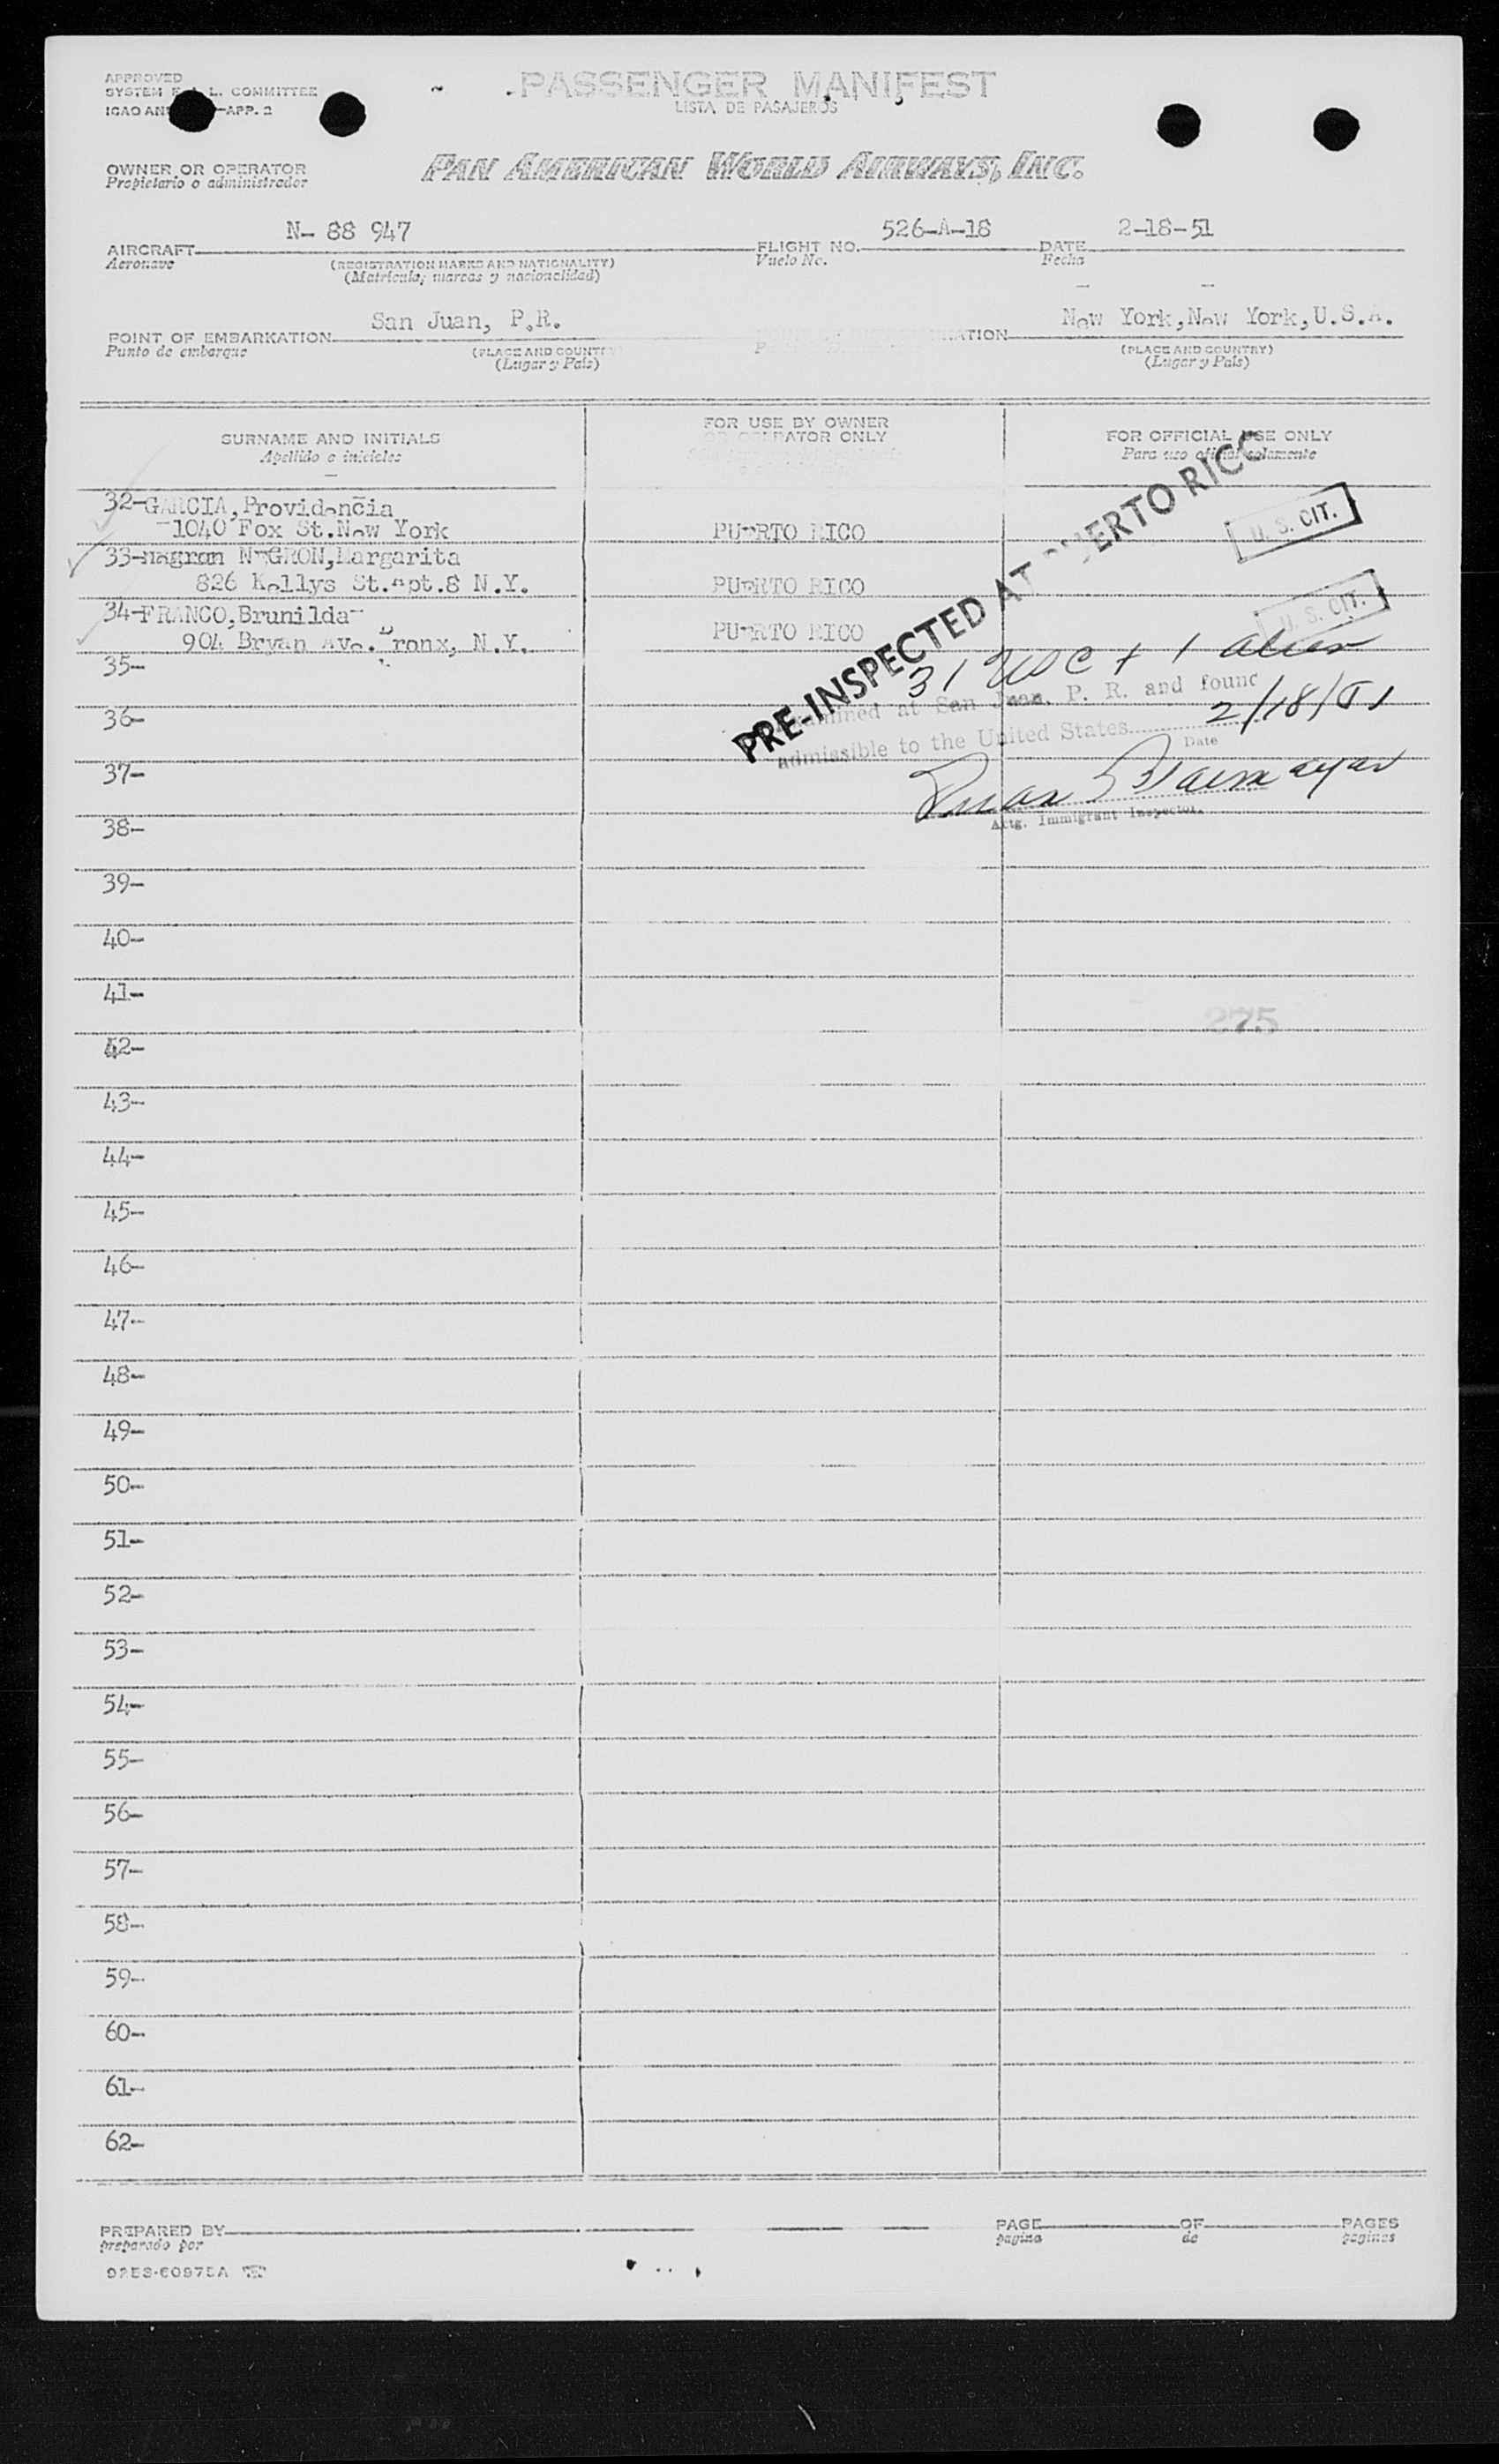 APPROVED
SYSTEM F. L. COMMITTEE
ICAO AN -APP. 2
PASSENGER MANIFEST
LISTA DE PASAJEROS
OWNER OR OPERATOR
Propietario o administrador
PAN AMERICAN WORLD AIRWAYS, INC.
AIRCRAFT N- 88 947 FLIGHT NO. 526-A-18 DATE 2-18-51
Aeronave (REGISTRATION MARKS AND NATIONALITY) Vuelo No. Fecha
(Matricula; marcas y nacionalidad)
POINT OF EMBARKATION San Juan, P.R. New York, New York, U.S.A.
Punto de embarque (PLACE AND COUNTRY) (PLACE AND COUNTRY)
(Lugar y País) (Lugar y País)
SURNAME AND INITIALS
Apellido e iniciales
FOR USE BY OWNER
OR OPERATOR ONLY
FOR OFFICIAL USE ONLY
Para uso oficial solamente
32-GARCIA, Providencia
1040 Fox St. New York PUERTO RICO
U. S. CIT.
33-Negron NEGRON, Margarita
826 Kellys St. Apt. 8 N.Y. PUERTO RICO
U. S. CIT.
34-FRANCO, Brunilda
904 Bryan Ave. Bronx, N.Y. PUERTO RICO
PRE-INSPECTED AT PUERTO RICO
31 USC + 1 alien
Examined at San Juan, P. R. and found
Admissible to the United States 2/18/51
Date
Actg. Immigrant Inspector.
35-
36-
37-
38-
39-
40-
41-
275
42-
43-
44-
45-
46-
47-
48-
49-
50-
51-
52-
53-
54-
55-
56-
57-
58-
59-
60-
61-
62-
PREPARED BY PAGE OF PAGES
preparado por pagina de paginas